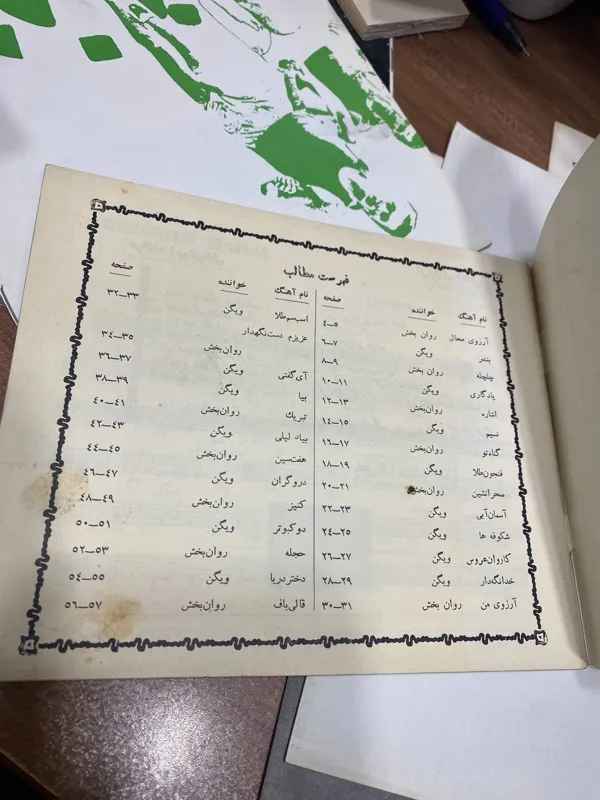 فهرست مطالب
نام آهنگ خواننده صفحه
آرزوی محال روان بخش ۴—۵
بندر ویگن ۶—۷
چلچله روان بخش ۸—۹
یادگاری ویگن ۱۰—۱۱
اشاره روان‌بخش ۱۲—۱۳
نسیم ویگن ۱۴—۱۵
گناه‌تو روان‌بخش ۱۶—۱۷
فنجون‌طلا ویگن ۱۸—۱۹
صحرانشین روان‌بخش ۲۰—۲۱
آسمان‌آبی ویگن ۲۲—۲۳
شکوفه ها ویگن ۲۴—۲۵
کاروان‌عروس ویگن ۲۶—۲۷
خدانگه‌دار ویگن ۲۸—۲۹
آرزوی من روان بخش ۳۰—۳۱
نام آهنگ خواننده صفحه
اسب‌سم‌طلا ویگن ۳۲—۳۳
عزیزم دست‌نگهدار
روان‌بخش ۳۴—۳۵
آی‌گفتی ویگن ۳۶—۳۷
بیا ویگن ۳۸—۳۹
تبریک روان‌بخش ۴۰—۴۱
بیاد لیلی ویگن ۴۲—۴۳
هفت‌سین روان‌بخش ۴۴—۴۵
دروگران ویگن ۴۶—۴۷
کنیز روان‌بخش ۴۸—۴۹
دو‌کبوتر ویگن ۵۰—۵۱
حجله روان‌بخش ۵۲—۵۳
دختر‌دریا ویگن ۵۴—۵۵
قالی‌باف روان‌بخش ۵۶—۵۷